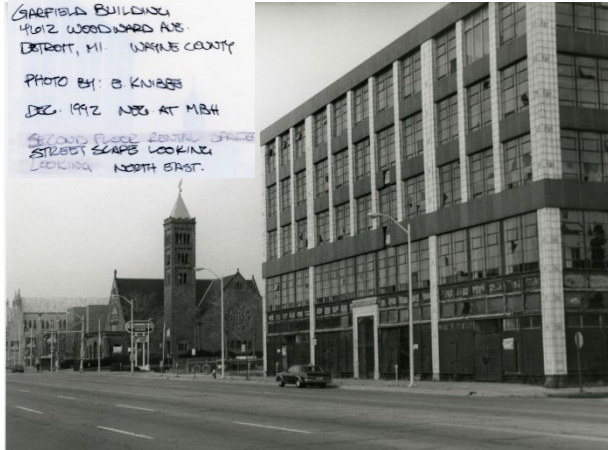 GARFIELD BUILDING
4612 WOODWARD AVE.
DETROIT, MI. WAYNE COUNTY
PHOTO BY: E. KNIBBE
DEC. 1992 NEG. AT MBH
SECOND FLOOR RENTAL SPACE
STREET SCAPE LOOKING
LOOKING NORTH EAST.